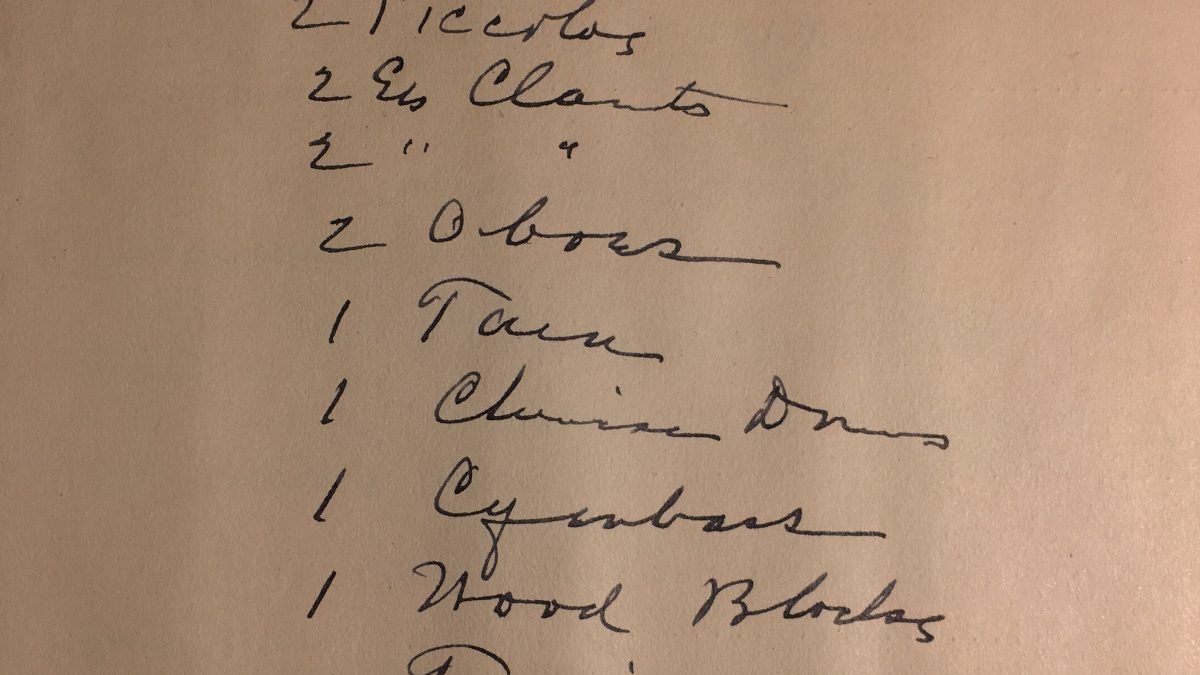 2 Piccolos
2 Eb Clarnts
2 " "
2 Oboes
1 Tam
1 Chinese Drums
1 Cymbals
1 Wood Blocks